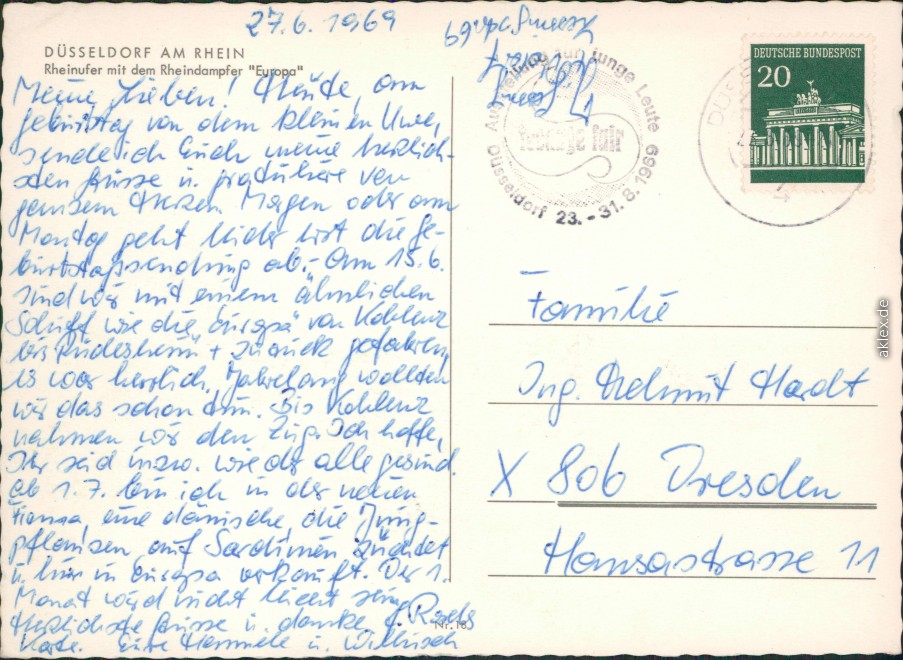 27.6.1969
DÜSSELDORF AM RHEIN
Rheinufer mit dem Rheindampfer "Europa"
Meine Lieben! Heute, am
Geburtstag von dem kleinen Uwe,
sende ich Euch meine herzlich-
sten Grüsse u. gratuliere von
ganzem Herzen. Morgen oder am
Montag geht leider erst die Ge-
burtstagssendung ab.- Am 15.6.
sind wir mit einem ähnlichen
Schiff wie die "Europa" von Koblenz
bis Rüdesheim + zurück gefahren,
es war herrlich, Jahrelang wollten
wir das schon tun. Bis Koblenz
nahmen wir den Zug. Ich hoffe,
Ihr seid inzw. wieder alle gesund.
Ab 1.7. bin ich in der neuen
Firma, eine dänische, die Jung-
pflanzen auf Sardinien züchtet
u. hier in Europa verkauft. Der 1.
Monat wird nicht leicht sein.
Herzlichste Grüsse u. danke f.
Karte. Eure Hannele u.
Ausstellung für junge Leute
teenage fair
Düsseldorf 23.-31.8.1969
DEUTSCHE BUNDESPOST
20
4
Familie
Ing. Helmut Hardt
X 806 Dresden
Hansastrasse 11
aklex.de